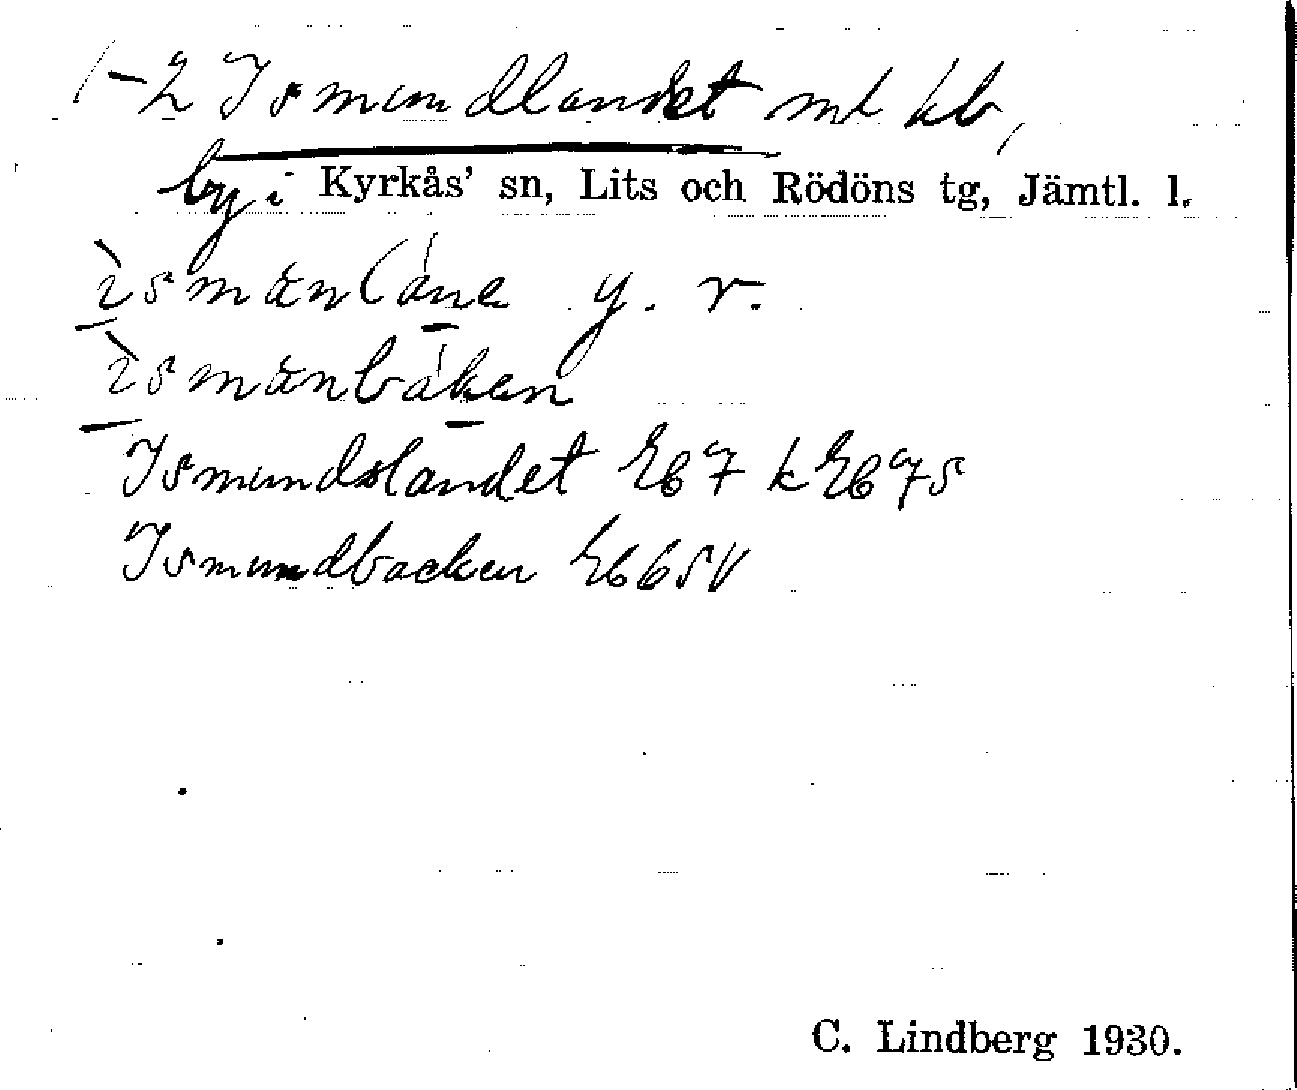 1-2 Ismundlandet mt kb,
by i Kyrkås' sn, Lits och Rödöns tg, Jämtl. l.
ìsmänláne y. r.
ìsmänbáken
Ismundslandet Eb7 k Eb75
Ismundbacken Eb65V
C. Lindberg 1930.